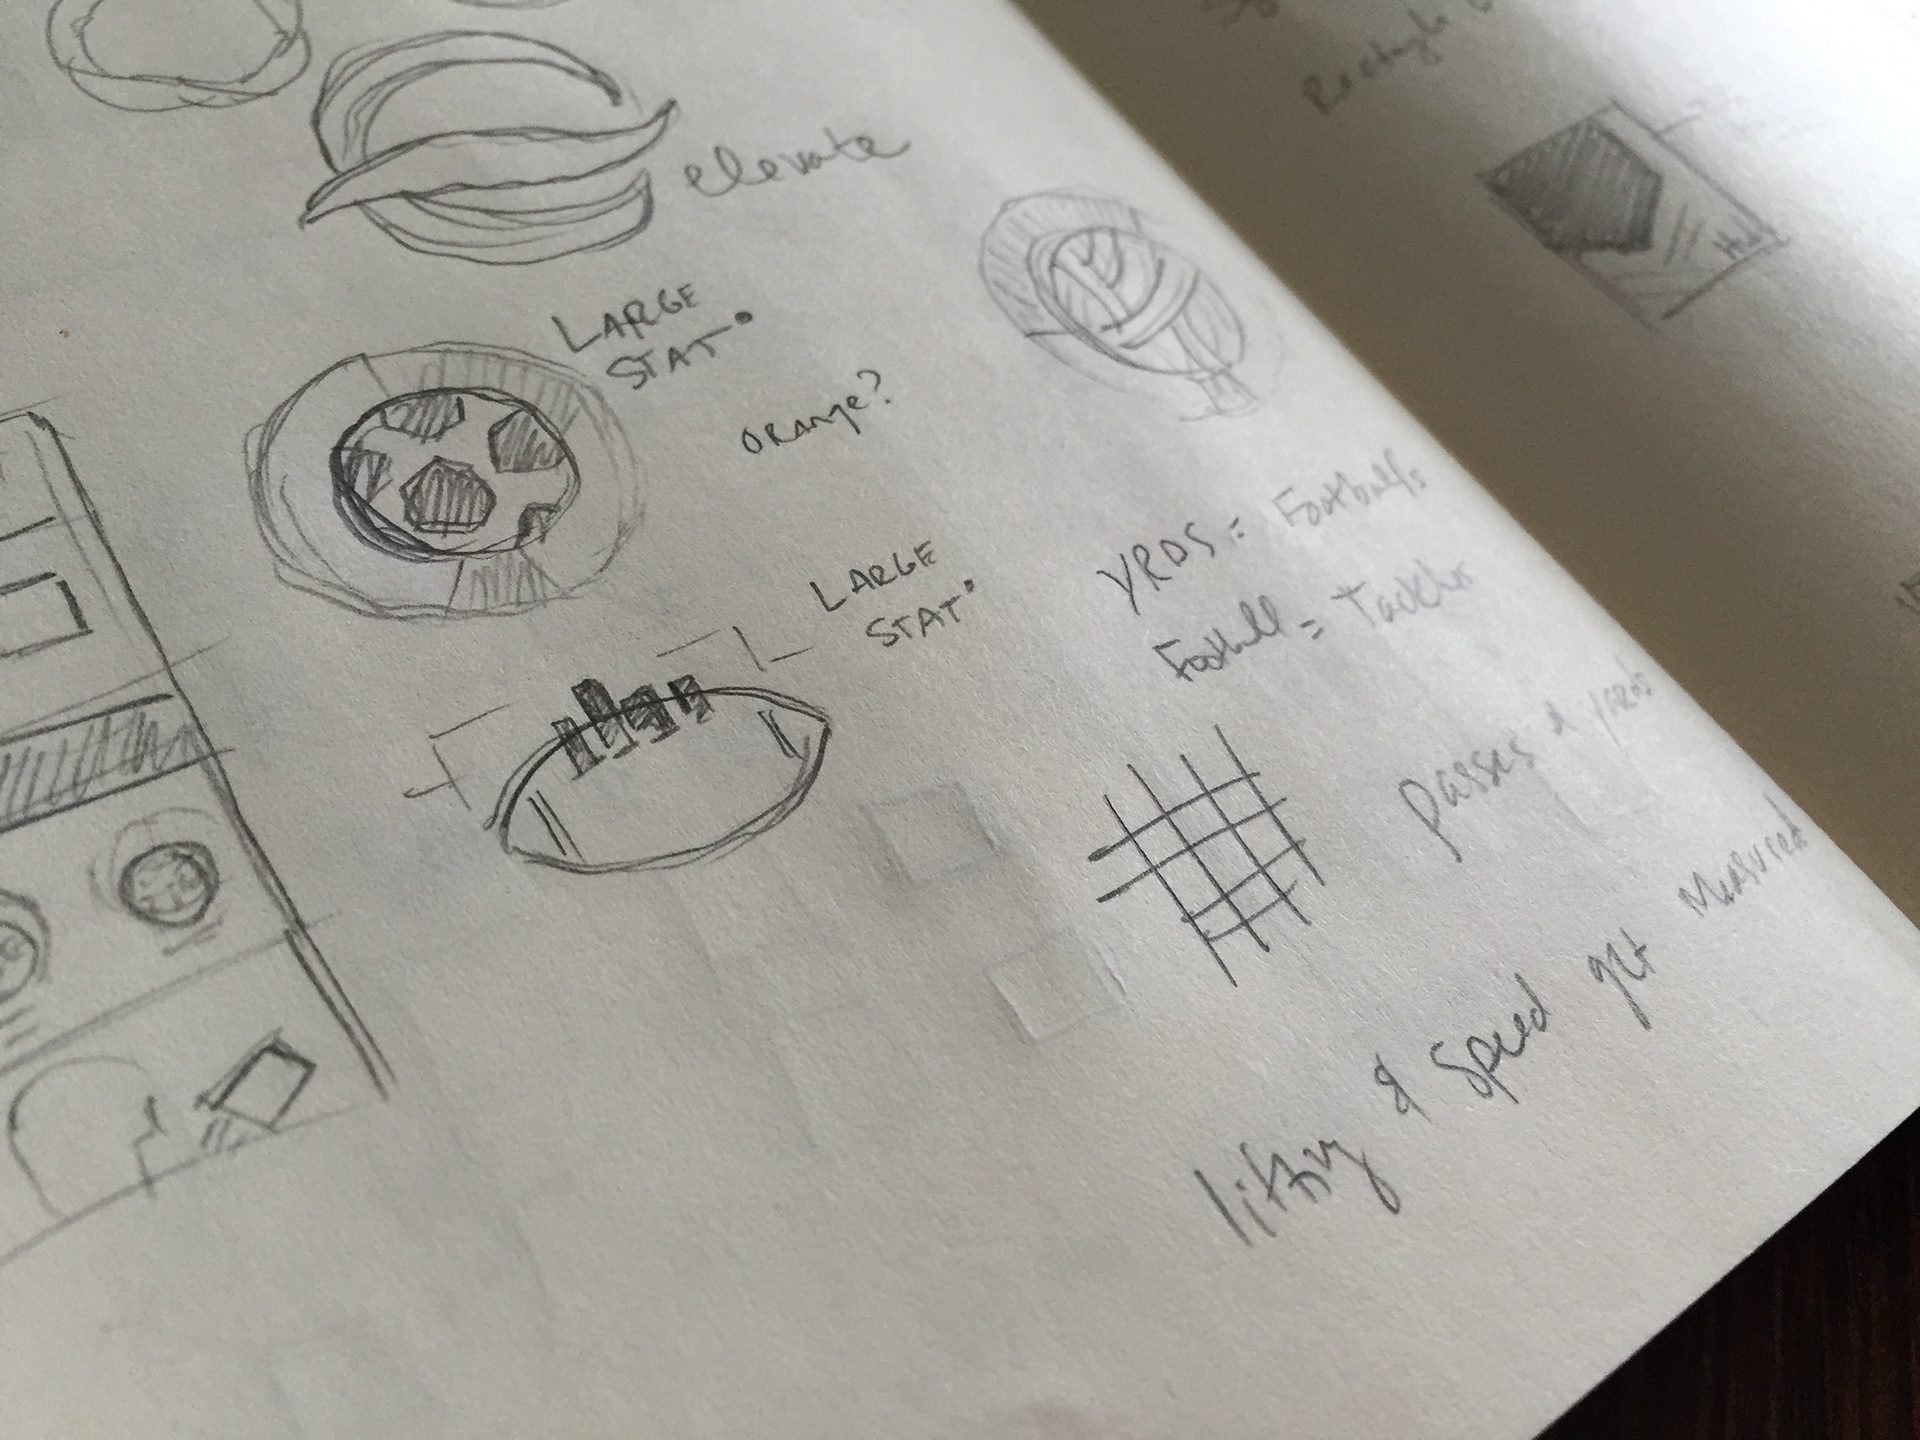 elevate
LARGE
STAT
ORANGE?
LARGE
STAT
YRDS = Footballs
Football =
passes & yards
lifting & speed get measured
Rectangle